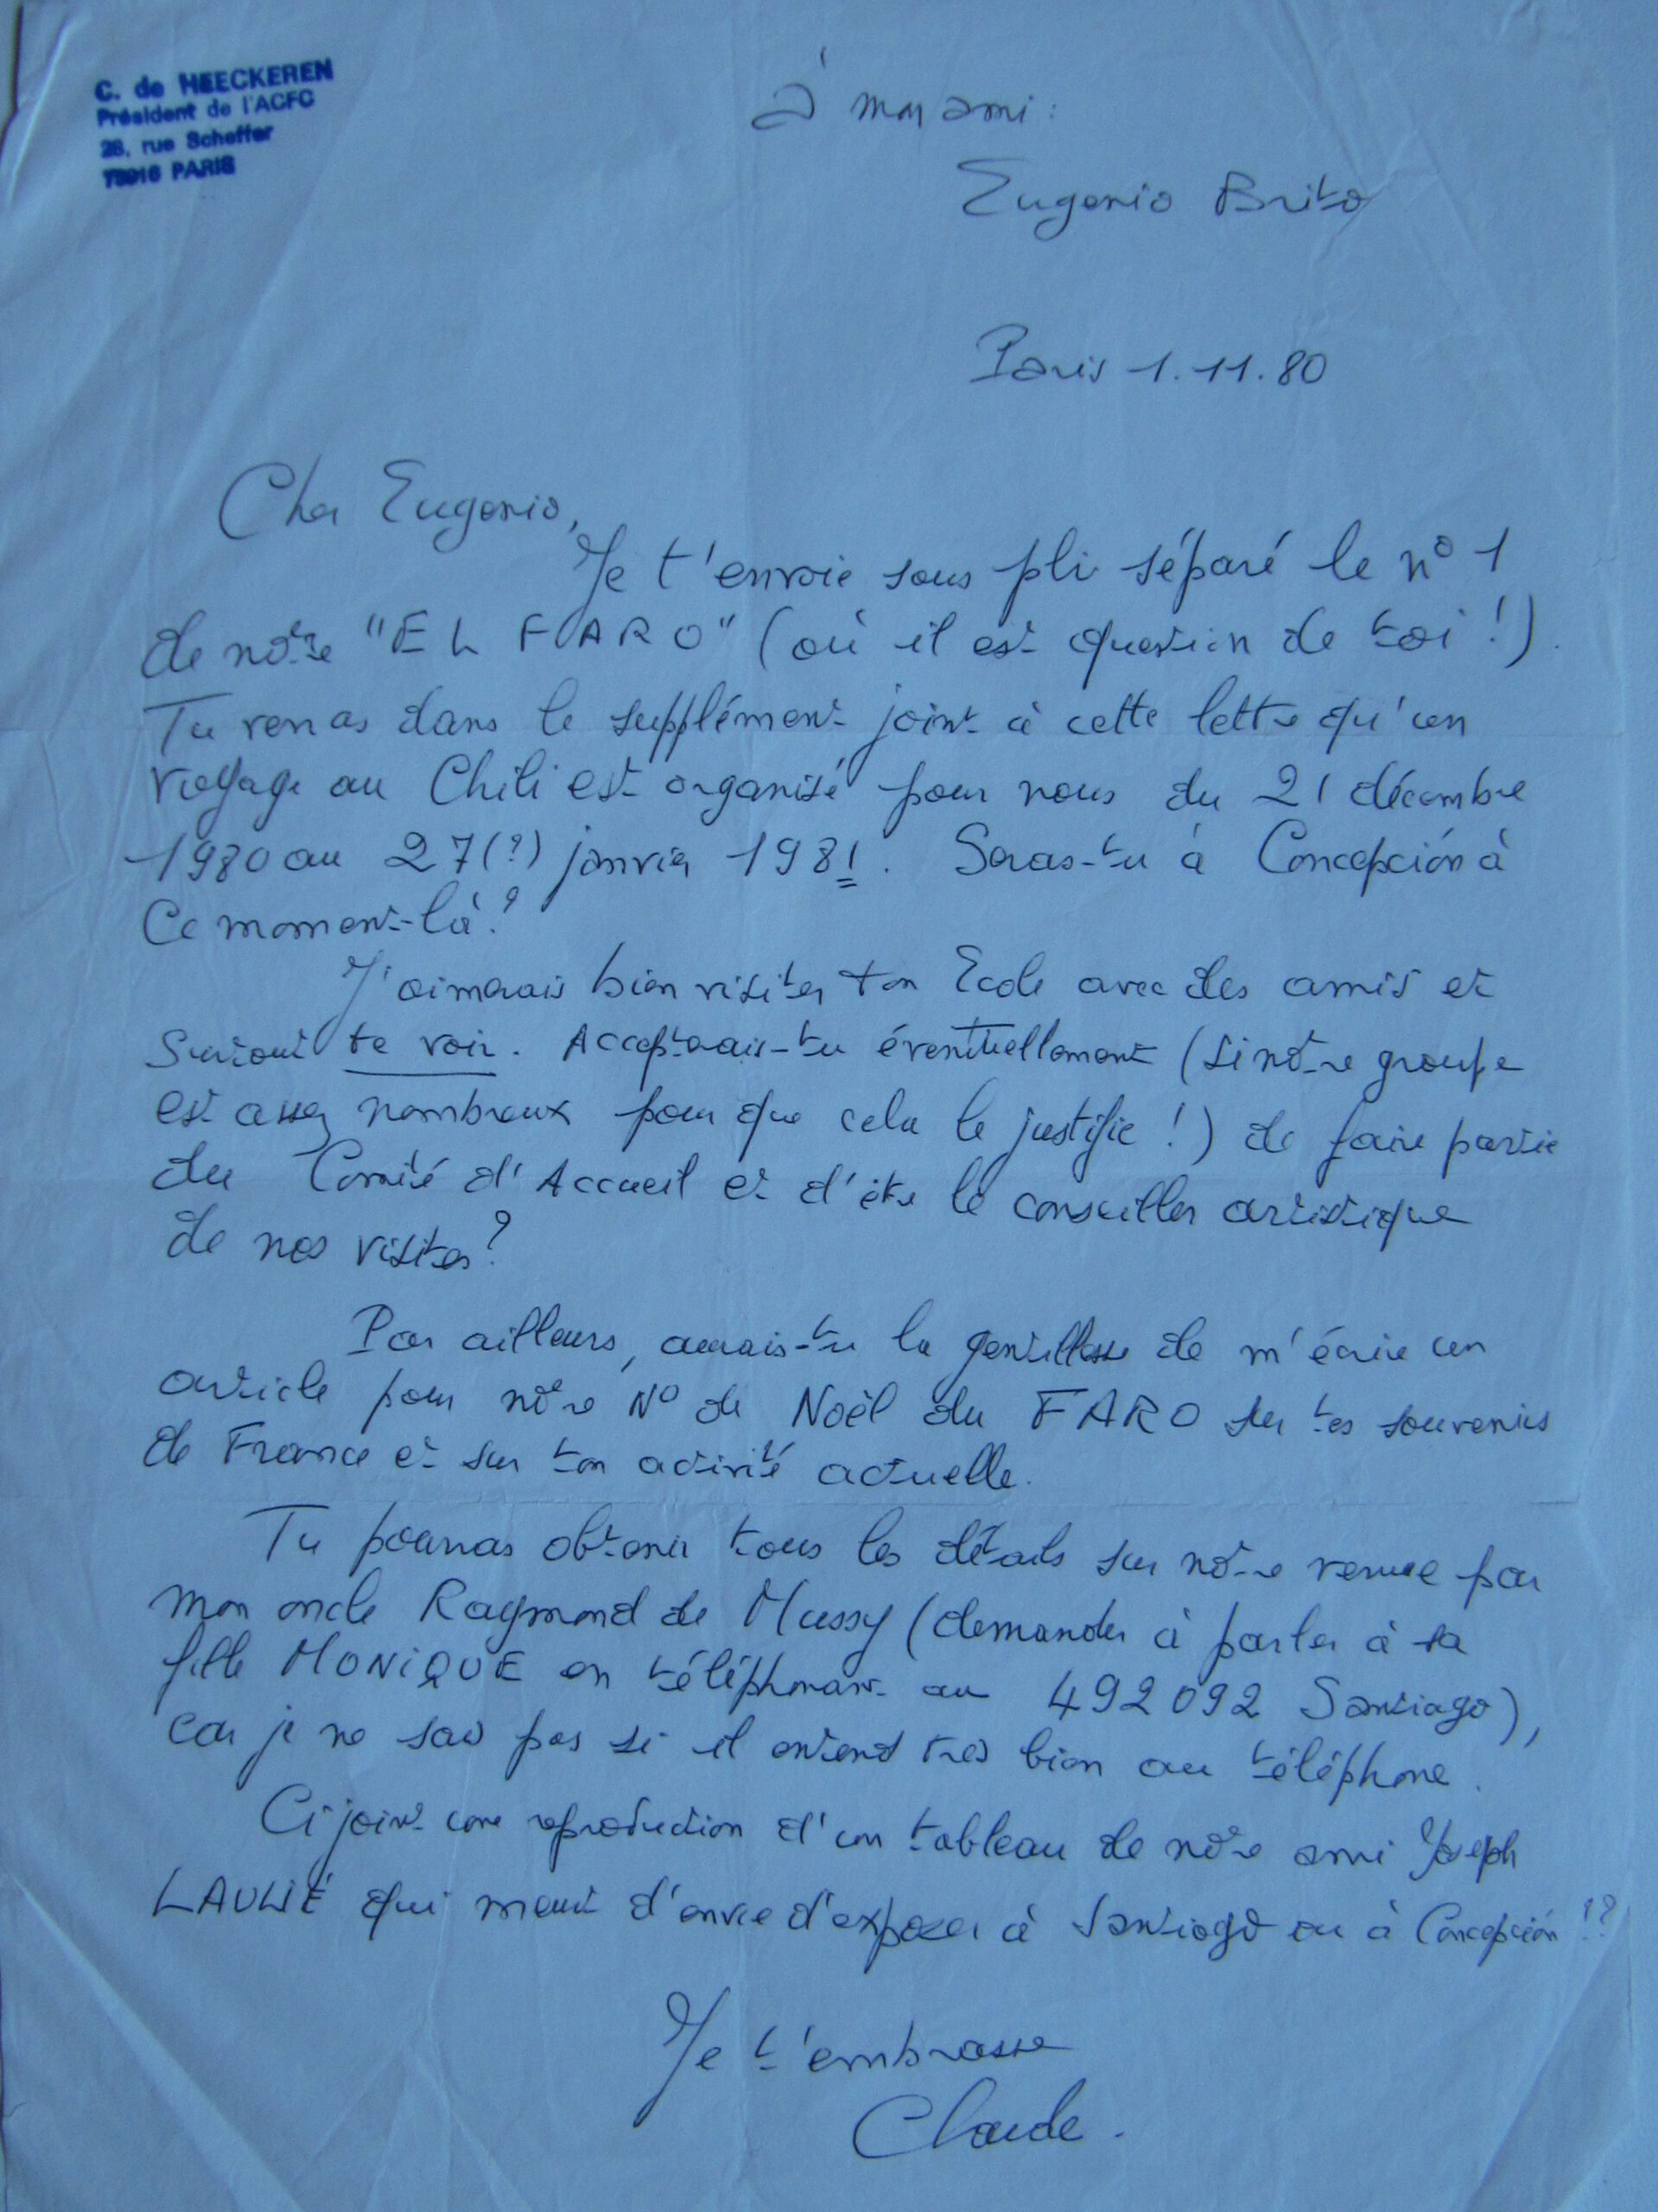 C. de HEECKEREN
Président de l'ACFC
28, rue Scheffer
75016 PARIS
à mon ami :
Eugenio Brito
Paris 1.11.80
Cher Eugenio,
Je t'envoie sous pli séparé le n° 1
de notre "EL FARO" (où il est question de toi !).
Tu verras dans le supplément joint à cette lettre qu'un
voyage au Chili est organisé pour nous du 21 décembre
1980 au 27(?) janvier 1981. Seras-tu à Concepción à
ce moment-là ?
J'aimerais bien visiter ton Ecole avec des amis et
surtout te voir. Accepterais-tu éventuellement (si notre groupe
est assez nombreux pour que cela le justifie !) de faire partie
du Comité d'Accueil et d'être le conseiller artistique
de nos visites ?
Par ailleurs, aurais-tu la gentillesse de m'écrire un
article pour notre N° de Noël du FARO sur tes souvenirs
de France et sur ton activité actuelle.
Tu pourras obtenir tous les détails sur notre venue par
mon oncle Raymond de Mussy (demander à parler à sa
fille MONIQUE en téléphonant au 492092 Santiago),
car je ne sais pas si il entend très bien au téléphone.
Ci joint une reproduction d'un tableau de notre ami Joseph
qui meurt d'envie d'exposer à Santiago ou à Concepción !?
Je t'embrasse
Claude.